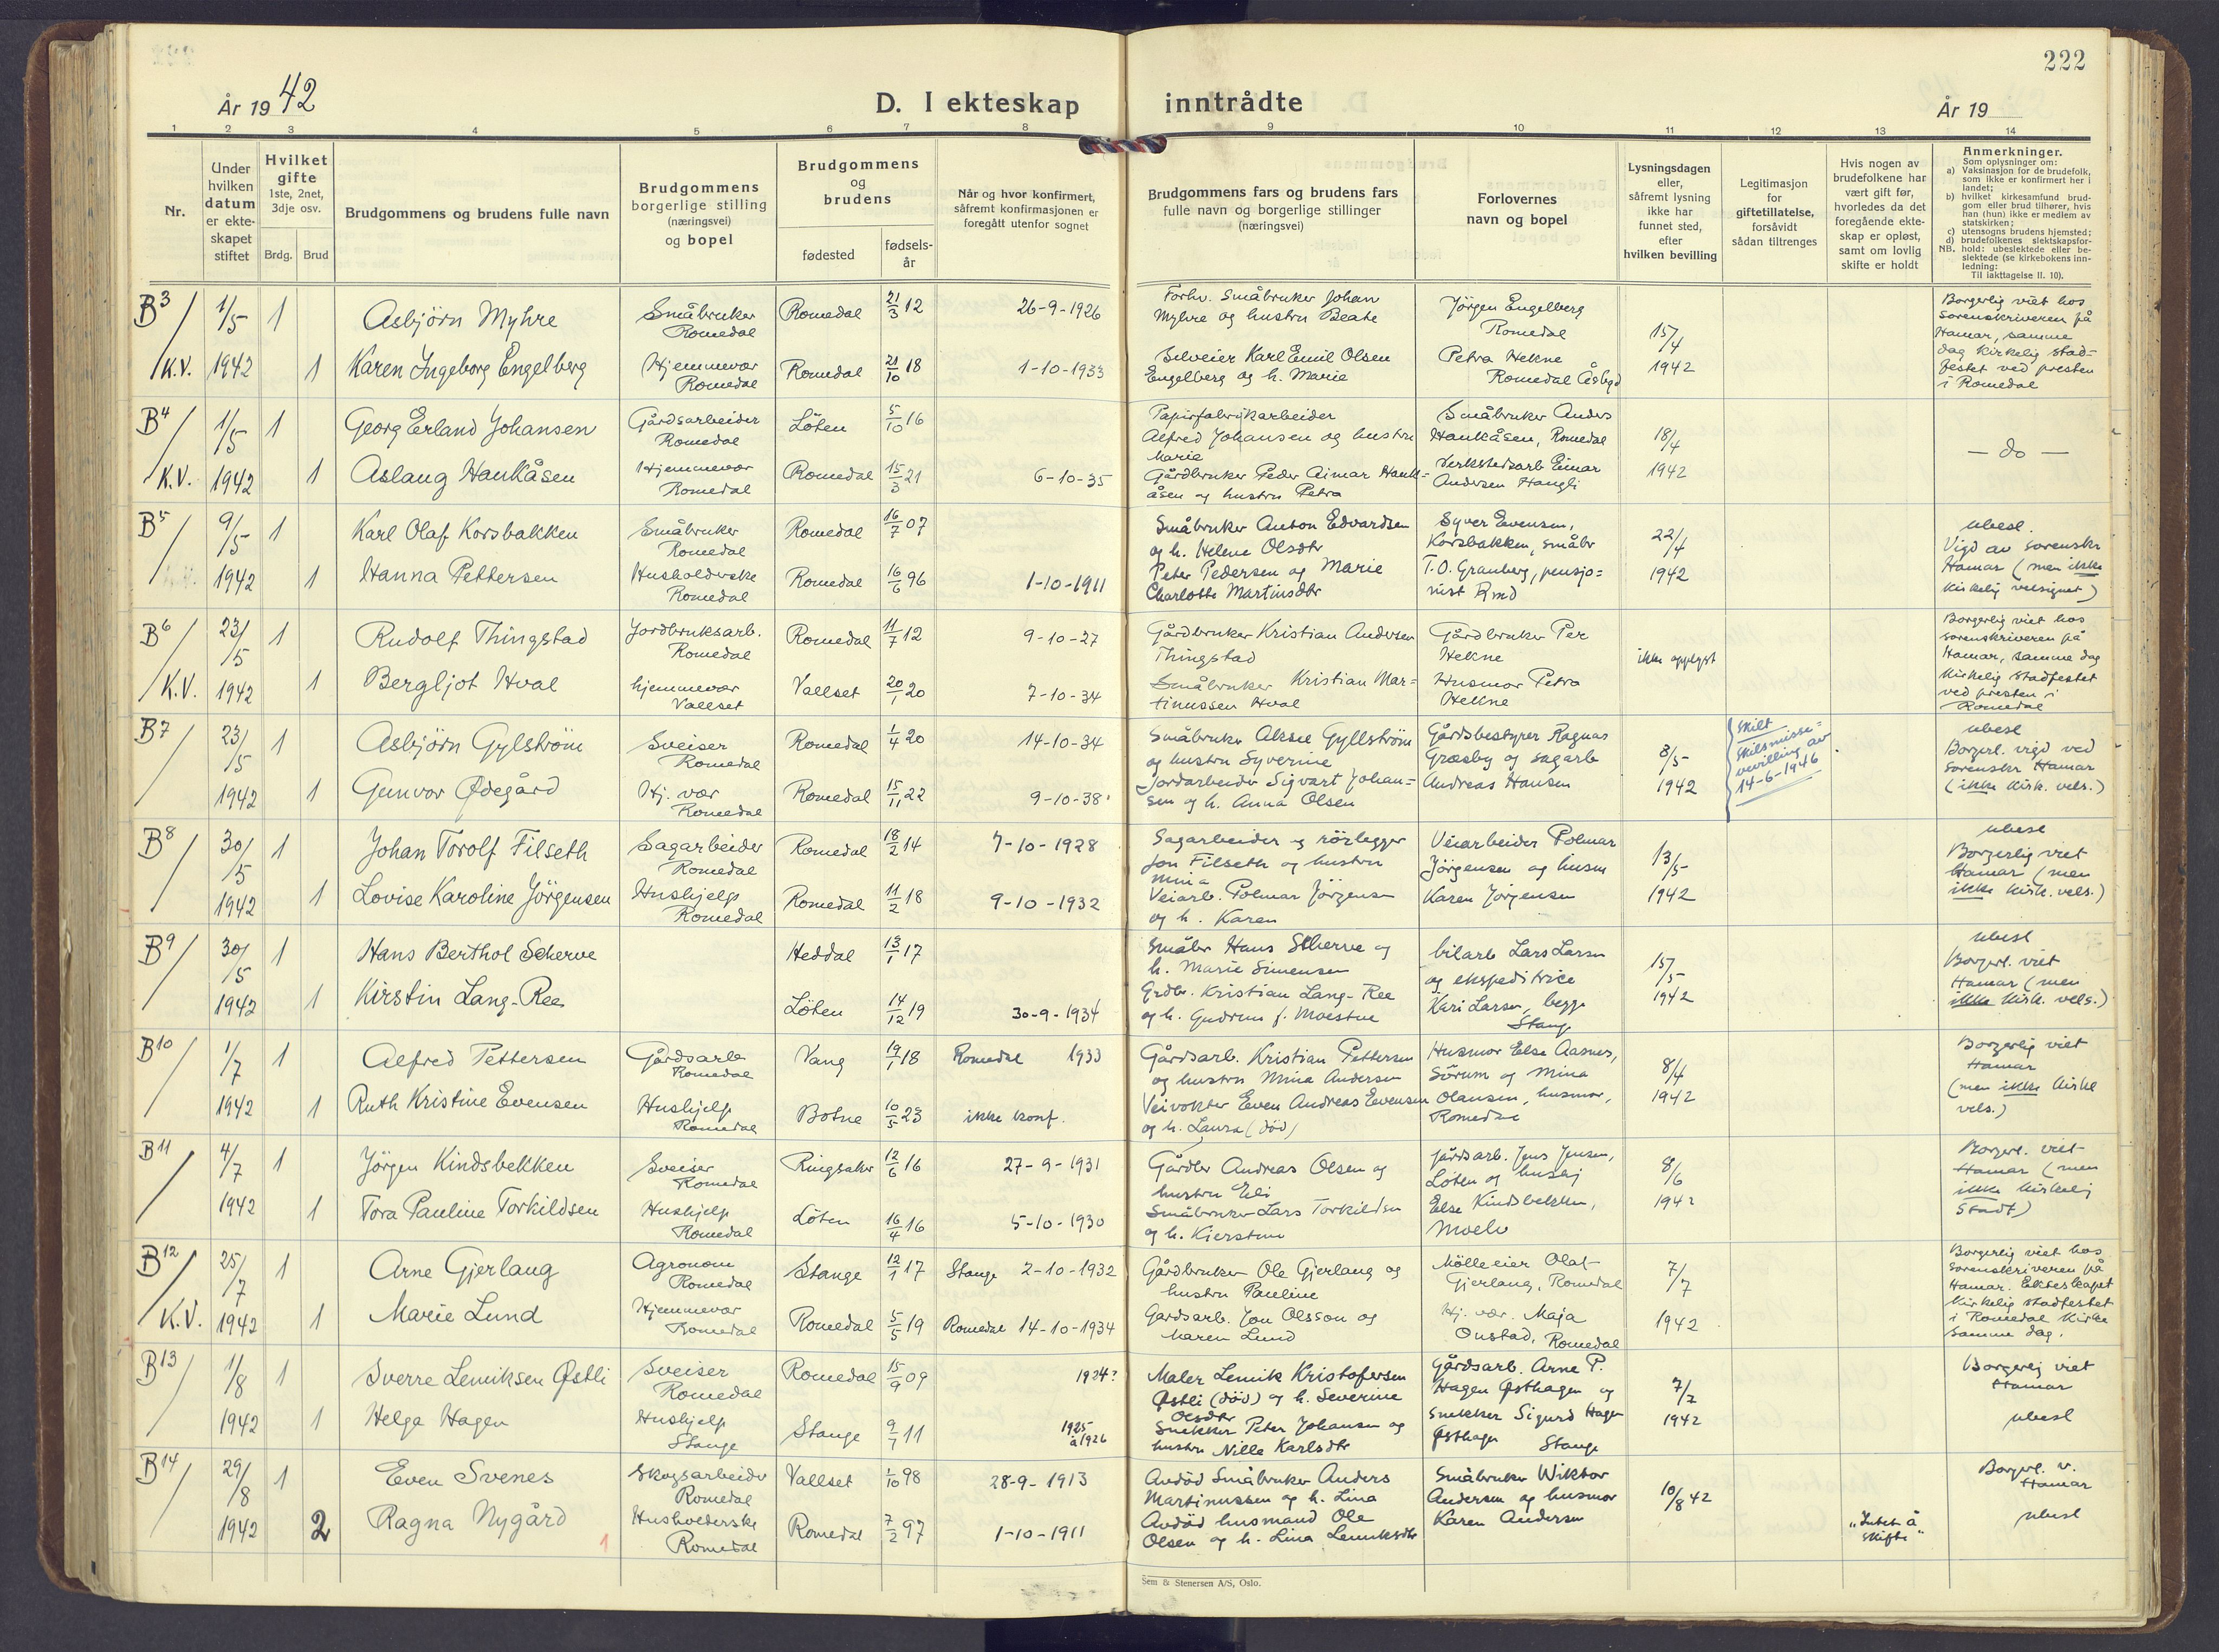 222
År 1942
D. I ekteskap inntrådte
År 19
1 2 3 4 5 6 7 8 9 10 11 12 13 14
Nr.
Under hvilken datum er ekteskapet stiftet
Hvilket gifte 1ste, 2net, 3dje osv.
Brdg. Brud
Brudgommens og brudens fulle navn
Brudgommens borgerlige stilling (næringsvei) og bopel
Brudgommens og brudens
fødested
fødsels-år
Når og hvor konfirmert, såfremt konfirmasjonen er foregått utenfor sognet
Brudgommens fars og brudens fars fulle navn og borgerlige stillinger (næringsvei)
Forlovernes navn og bopel
Lysningsdagen eller, såfremt lysning ikke har funnet sted, efter hvilken bevilling
Legitimasjon for giftetillatelse, forsåvidt sådan tiltrenges
Hvis nogen av brudefolkene har vært gift før, hvorledes da det foregående ekteskap er opløst, samt om lovlig skifte er holdt
Anmerkninger.
Som oplysninger om:
a) Vaksinasjon for de brudefolk, som ikke er konfirmert her i landet;
b) hvilket kirkesamfund brudgom eller brud tilhører, hvis han (hun) ikke er medlem av statskirken;
c) utensogns brudens hjemsted;
d) brudefolkenes slektskapsforhold: ubeslektede eller beslektede (se kirkebokens innledning:
NB. Til iakttagelse II. 10).
B3 1/5 1 Asbjörn Myhre Småbruker Romedal Romedal 21/3 12 26-9-1926 Forhv. Småbruker Johan Myhre og hustru Beate Jörgen Engelberg Romedal 15/4
K.V. 1942 1 Karen Ingeborg Engelberg Hjemmevær Romedal Romedal 21/10 18 1-10-1933 Selveier Karl Emil Olsen Engelberg og h. Marie Petra Hekne Romedal Åsbygd 1942
Borgerlig viet hos Sorenskriveren på Hamar, samme dag Kirkelig stadfestet ved presten i Romedal
B4 1/5 1 Georg Erland Johansen Gårdsarbeider Romedal Löten 5/10 16 Papirfabrikarbeider Alfred Johansen og hustru Marie Småbruker Anders Haukåsen, Romedal 18/4
K.V. 1942 1 Aslaug Haukåsen Hjemmevær Romedal Romedal 15/3 21 6-10-35 Gårdbruker Peder Aimar Haukåsen og hustru Petra Verkstedsarb Einar Andersen Haugli 1942
— do —
B5 9/5 1 Karl Olaf Korsbakken Småbruker Romedal Romedal 16/7 07 Småbruker Anton Edvardsen og h. Helene Olsdtr Syver Evensen, Korsbakken, småbr 22/4
1942 1 Hanna Pettersen Husholderske Romedal Romedal 16/6 96 1-10-1911 Peter Pedersen og Marie Charlotte Martinsdtr T.O. Granberg, pensjonist Rmd 1942
ubesl. Vigd av sorenskr Hamar (men ikke kirkelig velsignet)
B6 23/5 1 Rudolf Thingstad Jordbruksarb. Romedal Romedal 11/7 12 9-10-27 Gårdbruker Kristian Andersen Thingstad Gårdbruker Per Hekne ikke opplyst
K.V. 1942 1 Bergljot Hval hjemmevær Vallset Vallset 20/1 20 7-10-34 Småbruker Kristian Martinussen Hval Husmor Petra Hekne
Borgerlig viet hos sorenskriveren på Hamar, samme dag kirkelig stadfestet ved presten i Romedal
B7 23/5 1 Asbjörn Gylström Sveiser Romedal Romedal 1/4 20 14-10-34 Småbruker Aksel Gyllström og hustru Syverine Gårdsbestyrer Ragnar Græsby og sagarb 8/5
1942 1 Gunvor Ødegård Hj. vær Romedal Romedal 15/11 22 9-10-38 Jordarbeider Sigvart Johansen og h. Anna Olsen Andreas Hansen 1942
Skilt Skilsmissebevilling av 14-6-1946
ubesl Borgerl. vigd ved sorenskr Hamar (ikke kirk. vels.)
B8 30/5 1 Johan Torolf Filseth Sagarbeider Romedal Romedal 18/2 14 7-10-1928 Sagarbeider og rörlegger Jon Filseth og hustru Mina Veiarbeider Polmar Jörgensen og husm 13/5
1942 1 Lovise Karoline Jörgensen Hushjelp Romedal Romedal 11/2 18 9-10-1932 Veiarb. Polmar Jörgensen og h. Karen Karen Jörgensen 1942
ubesl Borgerlig viet Hamar (men ikke kirk. vels.)
B9 30/5 1 Hans Berthol Scherve Heddal 13/1 17 Småbr Hans Scherve og h. Marie Simensen bilarb Lars Larsen og ekspeditrice 15/5
1942 1 Kirstin Lang-Ree Löten 14/12 19 30-9-1934 Grdbr. Kristian Lang-Ree og h. Gudrun f. Moestue Kari Larsen, begge Stange 1942
ubesl Borgerl. viet Hamar (men ikke kirk. vels.)
B10 1/7 1 Alfred Pettersen Gårdsarb Romedal Vang 19/1 18 Romedal 1933 Gårdsarb. Kristian Pettersen og hustru Mina Andersen Husmor Else Aasnes, Sörum og Mina 8/4
1942 1 Ruth Kristine Evensen Hushjelp Romedal Botne 10/5 23 ikke konf. Veivokter Even Andreas Evensen og h. Laura (död) Olausen, husmor, Romedal 1942
Borgerlig viet Hamar (men ikke kirke vels.)
B11 4/7 1 Jörgen Kindsbekken Sveiser Romedal Ringsaker 12/6 16 27-9-1931 Gårdbr Andreas Olsen og hustru Eli gårdsarb. Jens Jensen, Löten og hushj 8/6
1942 1 Tora Pauline Torkildsen Hushjelp Romedal Löten 16/4 16 5-10-1930 Småbruker Lars Torkildsen og h. Kjerstine Else Kindsbekken, Moelv 1942
Borgerl. viet Hamar (men ikke kirkelig Stadf)
B12 25/7 1 Arne Gjerlaug Agronom Romedal Stange 12/1 17 Stange 2-10-1932 Gårdbruker Ole Gjerlaug og hustru Pauline Mölleeier Olaf Gjerlaug, Romedal 7/7
K.V. 1942 1 Marie Lund Hjemmevær Romedal Romedal 5/5 19 Romedal 14-10-1934 Gardsarb. Jon Olsson og Maren Lund Hj. vær. Maja Onstad, Romedal 1942
Borgerlig viet hos Sorenskriveren på Hamar. Ekteskapet kirkelig stadfestet i Romedal Kirke samme dag.
B13 1/8 1 Sverre Lemiksen Østli Sveiser Romedal Romedal 15/9 09 1924? Maler Lemik Kristofersen Østli (död) og h. Severine Olsdtr Gårdsarb. Arne P. Hagen Østhagen og 7/7
1942 1 Helga Hagen Hushjelp Stange Stange 9/7 11 1925 à 1926 Snekker Peter Johansen og hustru Nille Karlsdtr Snekker Sigurd Hagen Østhagen Stange 1942
Borgerlig viet Hamar ubesl
B14 29/8 1 Even Svenes Skogsarbeider Romedal Vallset 1/10 98 28-9-1913 Avdöd Småbruker Anders Martinussen og h. Lina Småbruker Wiktor Andersen og husmor 10/8 42
1942 2 Ragna Nygård 1 Husholderske Romedal Romedal 7/2 97 1-10-1911 Avdöd husmand Ole Olsen og h. Lina Lemiksdtr Karen Andersen
"Intet å skifte"
Borgerl. v. Hamar ubesl
Sem & Stenersen A/S, Oslo.